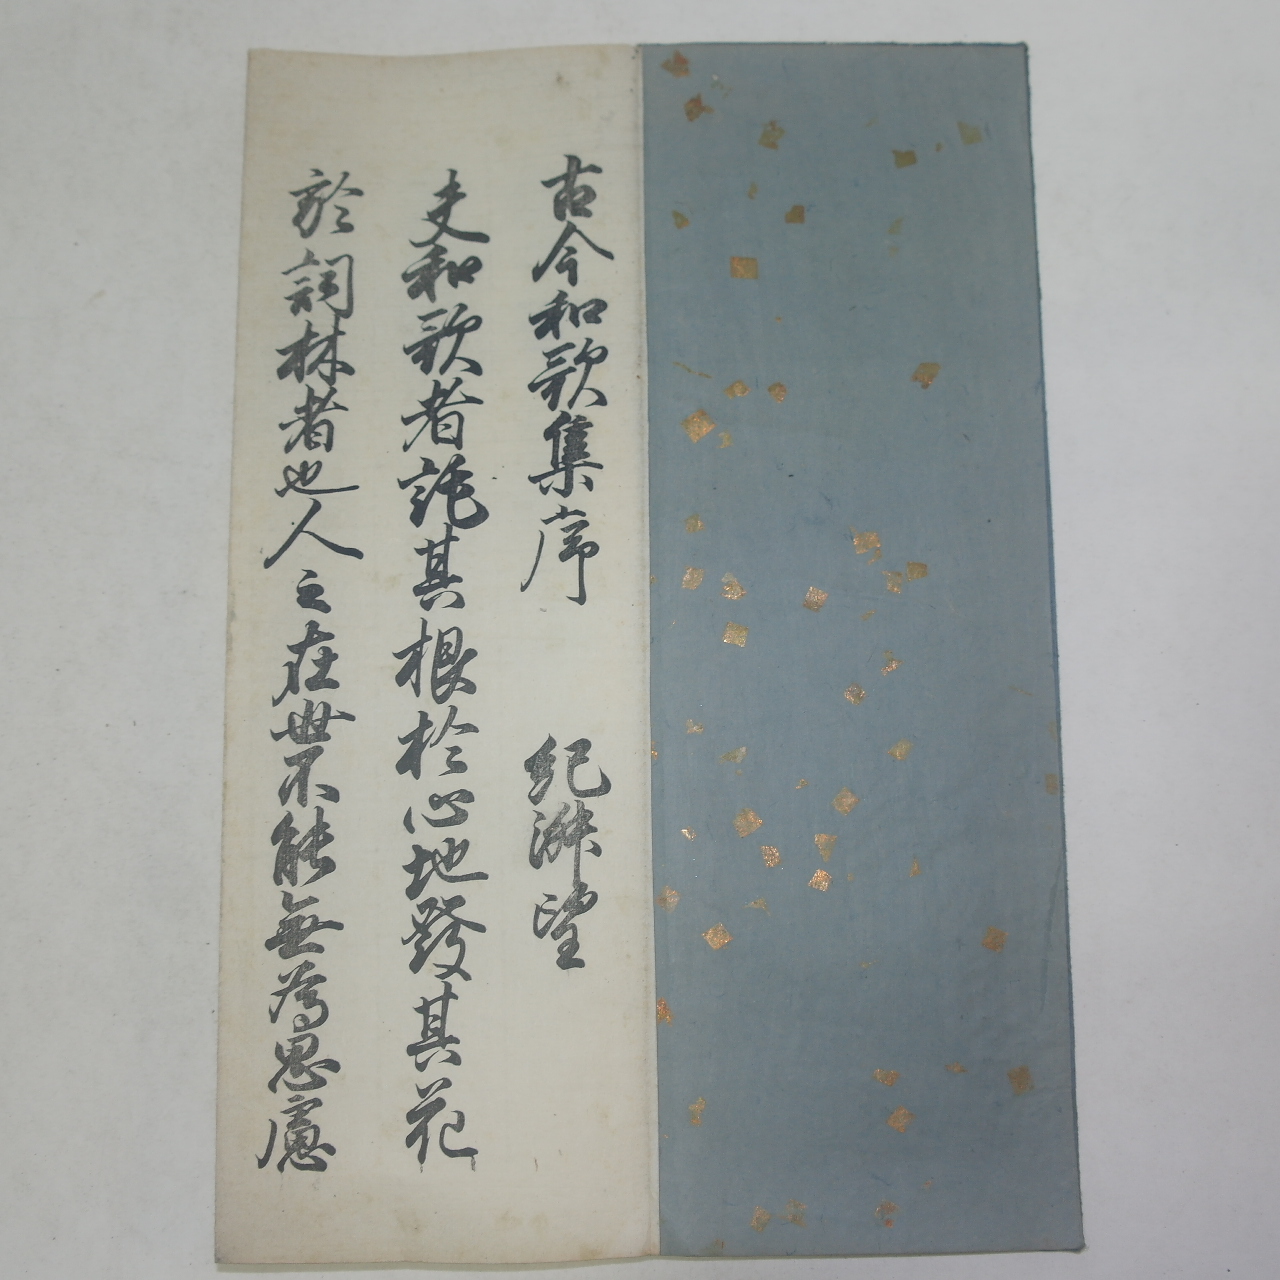 古今和歌集序 紀淑望
夫和歌者託其根於心地發其花
於詞林者也人之在世不能無為思慮